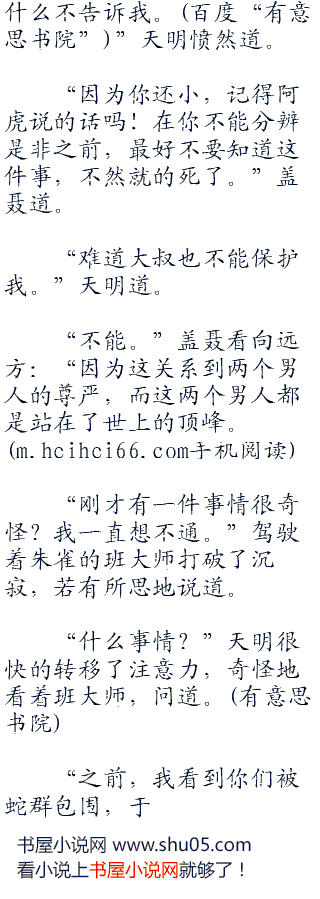 什么不告诉我。(百度“有意
思书院”)”天明愤然道。
“因为你还小，记得阿
虎说的话吗！在你不能分辨
是非之前，最好不要知道这
件事，不然就的死了。”盖
聂道。
“难道大叔也不能保护
我。”天明道。
“不能。”盖聂看向远
方：“因为这关系到两个男
人的尊严，而这两个男人都
是站在了世上的顶峰。
(m.hcihci66.com手机阅读)
“刚才有一件事情很奇
怪？我一直想不通。”驾驶
着朱雀的班大师打破了沉
寂，若有所思地说道。
“什么事情？”天明很
快的转移了注意力，奇怪地
看着班大师，问道。(有意思
书院)
“之前，我看到你们被
蛇群包围，于
书屋小说网 www.shu05.com
看小说上书屋小说网就够了！